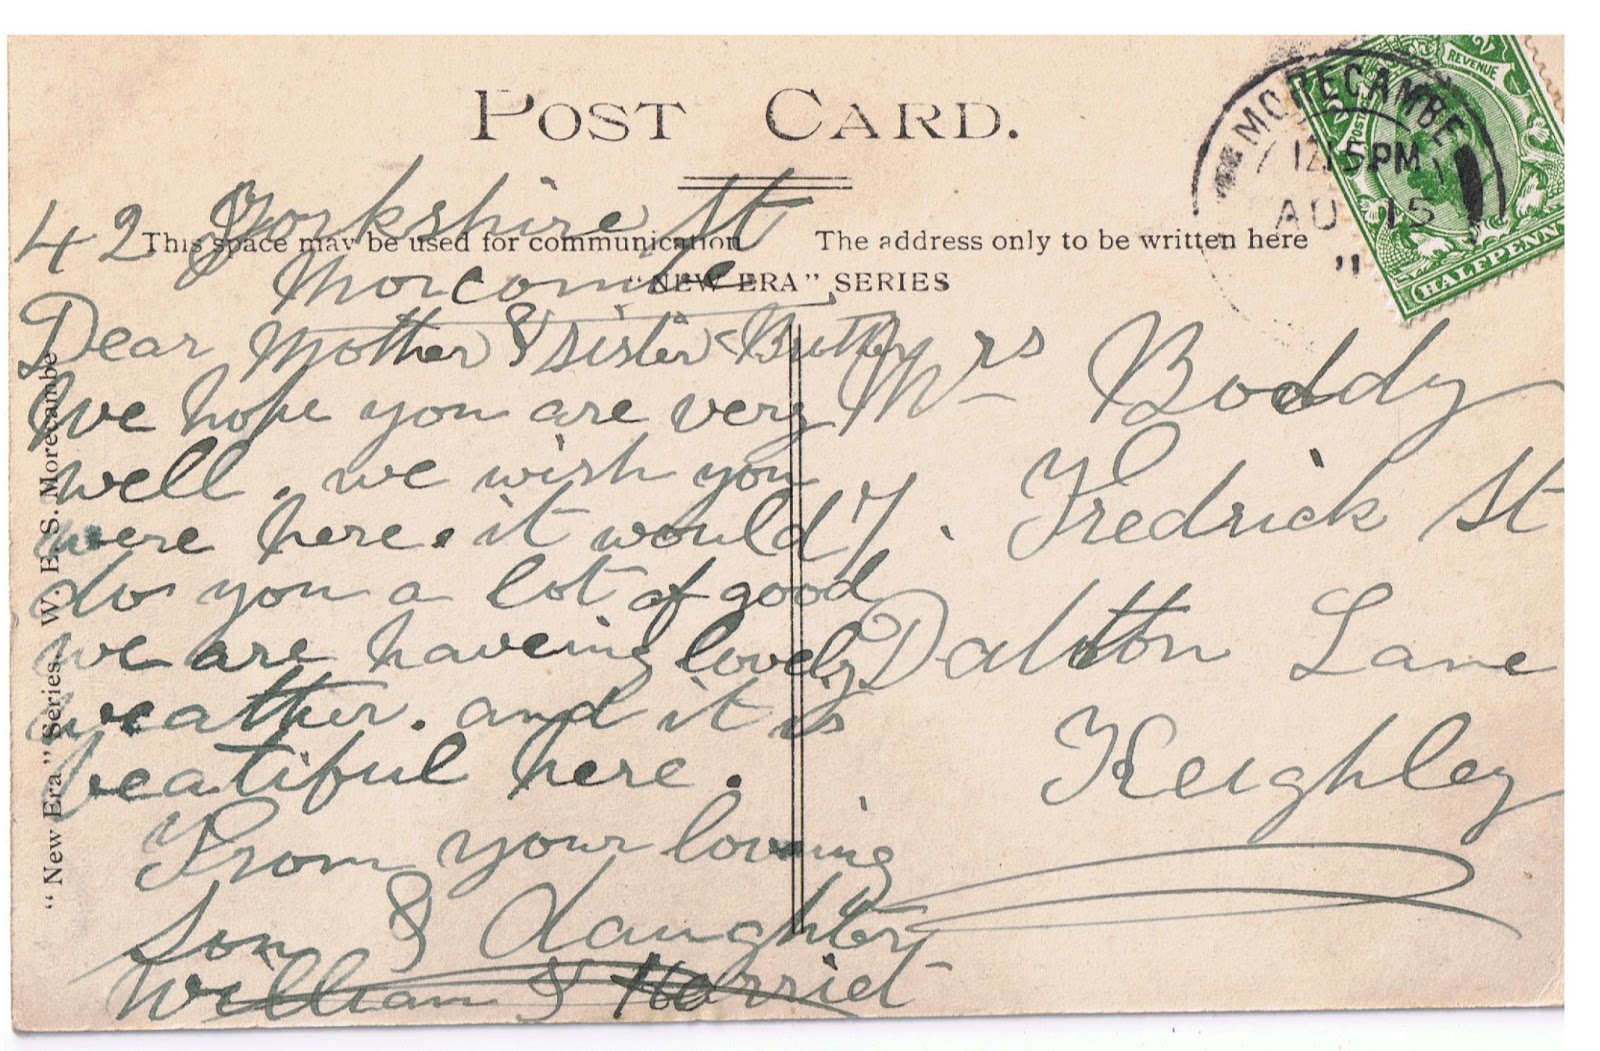 POST CARD.
This space may be used for communication
The address only to be written here
"NEW ERA" SERIES
MORECAMBE
12.15 PM
AU 15
11
POSTAGE
REVENUE
HALFPENNY
42 Yorkshire St
Morcombe
Dear Mother & sister &
We hope you are very
well. we wish you
were here. it would
do you a lot of good
we are haveing lovely
weather. and it is
beatiful here.
From your loveing
Son & daughter
William & Harriet
Mrs Boddy
7. Fredrick St
Dalton Lane
Keighley
"New Era" Series. W. E. S. Morecambe